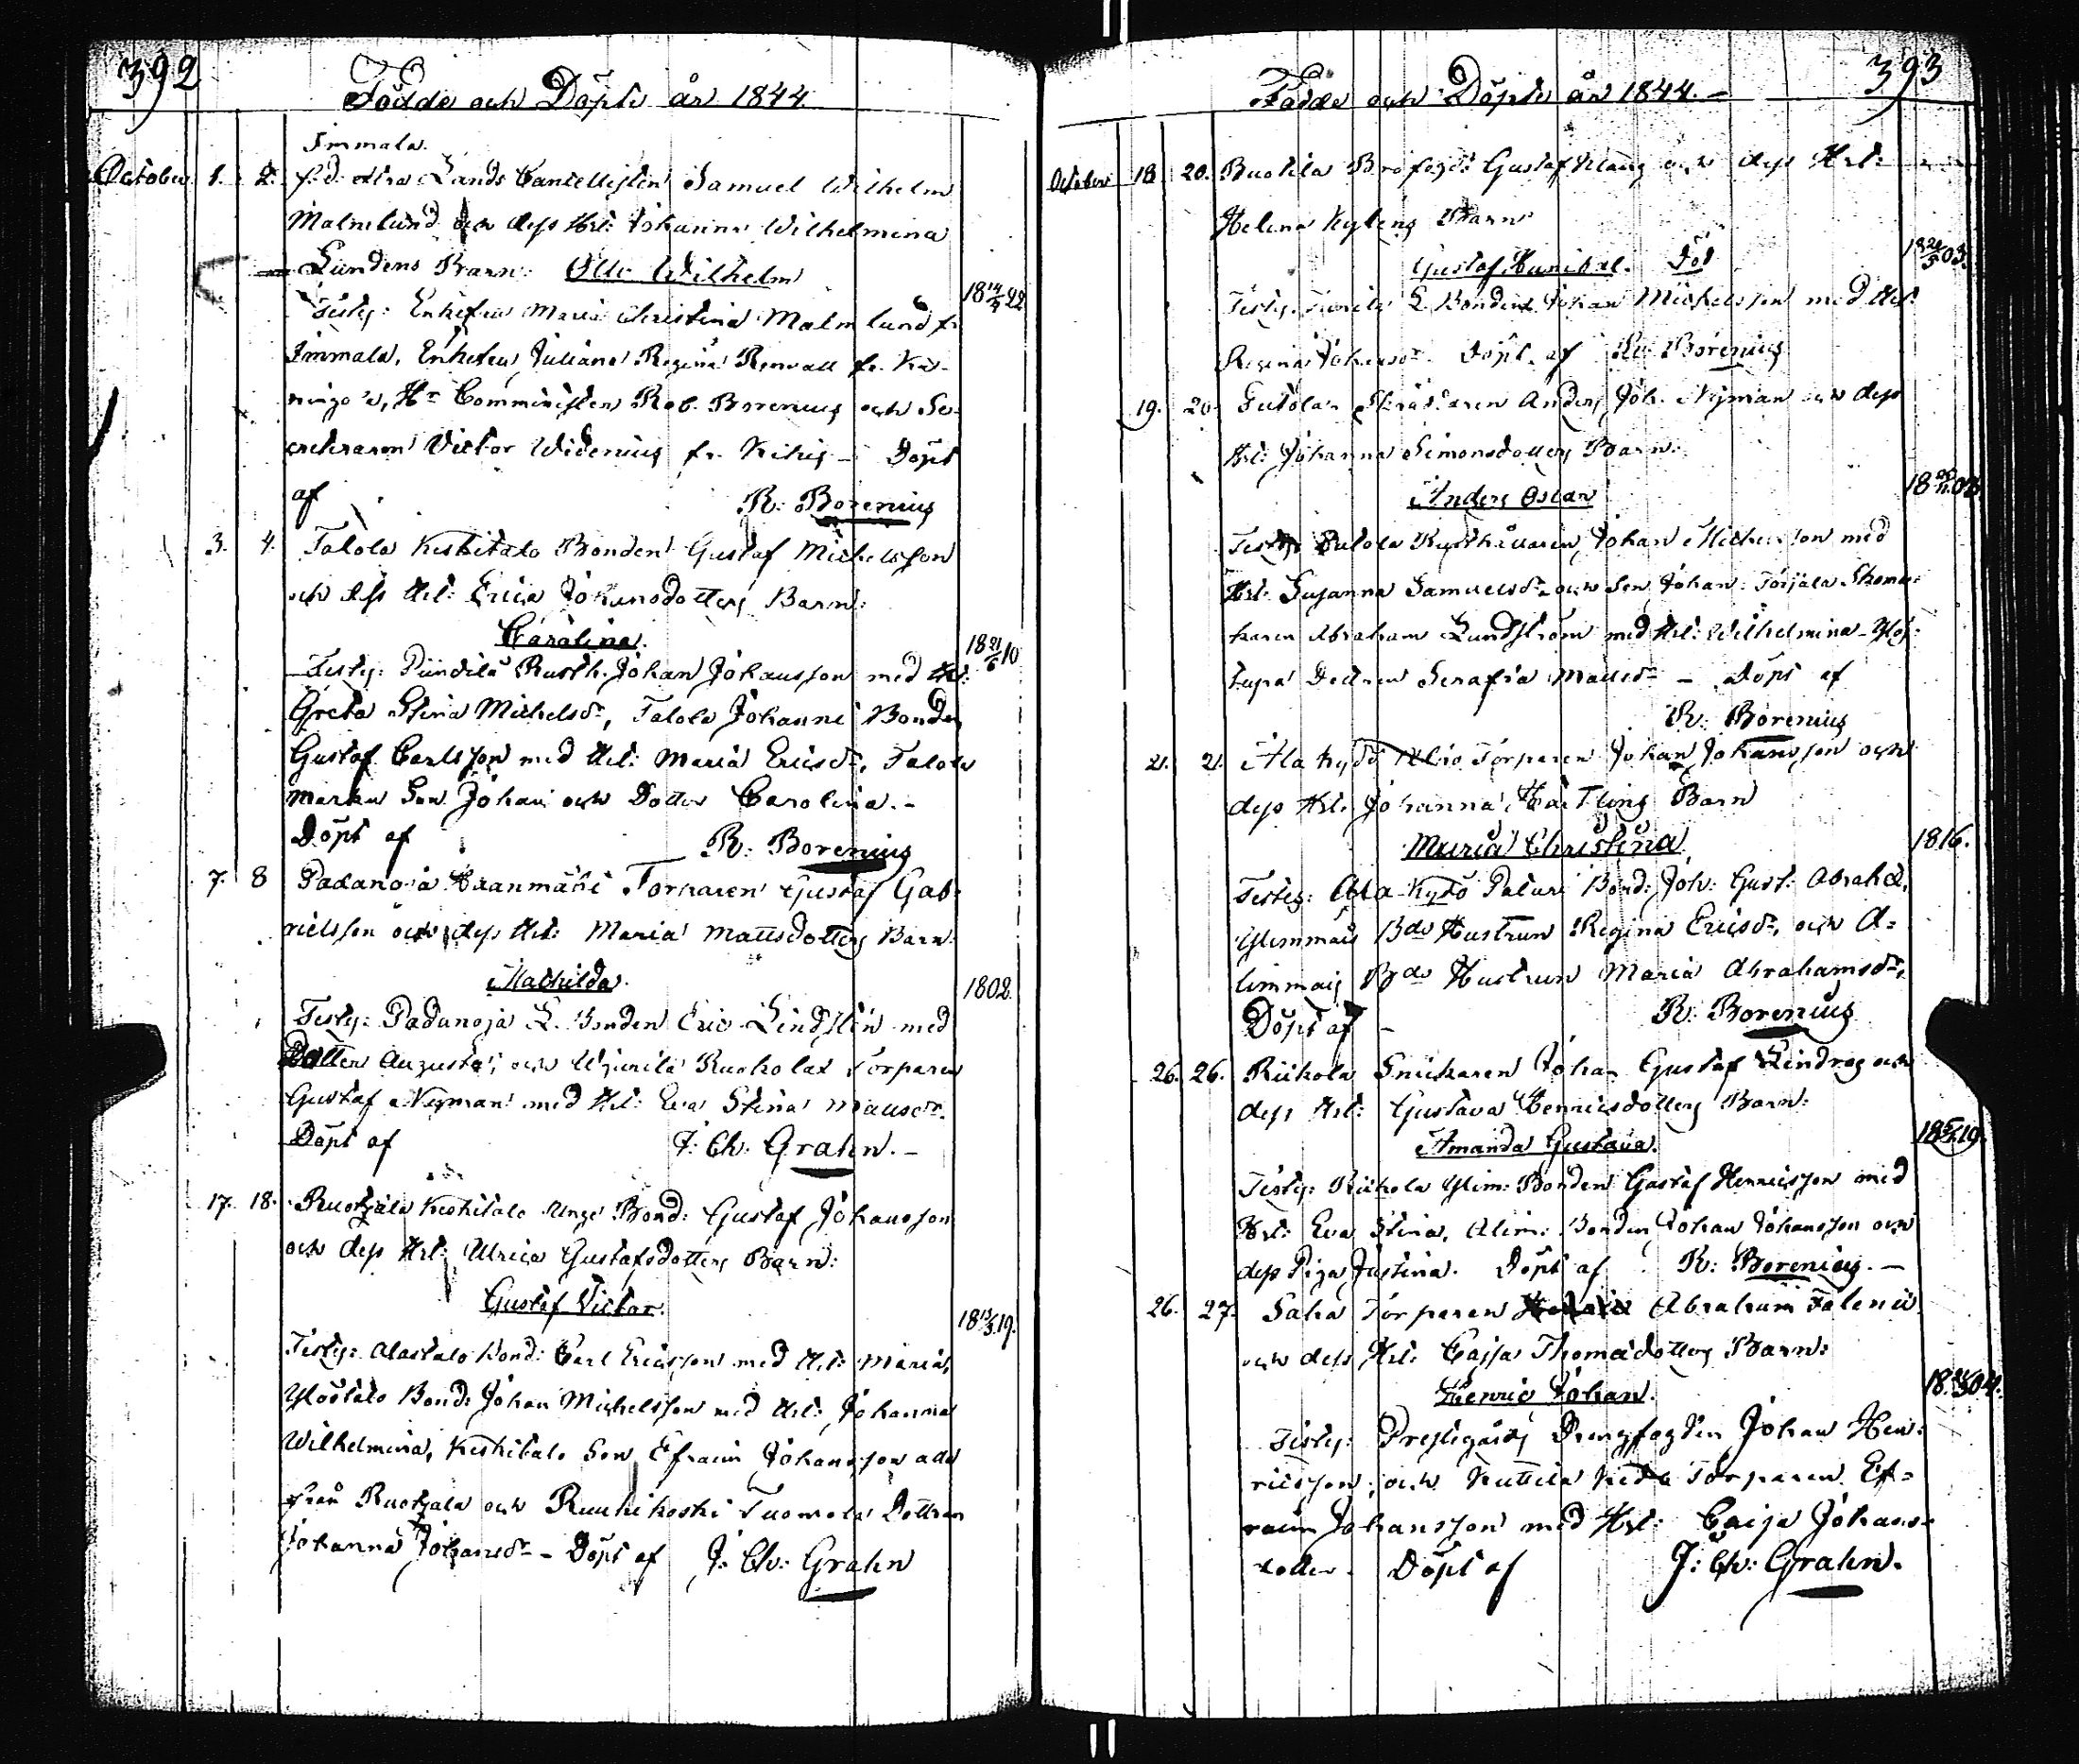 392
Födde och Döpte år 1844
Immala.
October 1. 2. f.d. Lands Cancellisten Samuel Wilhelm
Malmlund och dess Hst: Johanna Wilhelmina
Lundens Barn: Otto Wilhelm
18 14/4 22
Testes: Enkefru Maria Christina Malmlund fr.
Immala, Enkefru Juliana Regina Renvall fr. Kä-
Hr Comministern Rob. Borenius och Se-
creteraren Victor Widenius fr. Kihis - Döpt
af R: Borenius
3. 4. Talola Keskitalo Bonden Gustaf Michelsson
och dess Hst: Erica Johansdotters Barn:
Carolina.
18 21/6 10
Testes: Pundila Rusth. Johan Johansson med Hst:
Greta Stina Michelsdr, Talola Johanni Bonden
Gustaf Carlsson med Hst: Maria Ericsdr, Talola
Marku Son Johan och Dotter Carolina.-
Döpt af R: Borenius
7. 8 Padanoja Torparen Gustaf Gab-
rielsson och dess Hst: Maria Mattsdotters Barn:
Mathilda.
1802.
Testes: Padanoja L. Bonden Eric Lindsten med
Dotter Augusta, och Ruokolax Torparen
Gustaf Nyman med Hst: Eva Stina Mattsdr.
Döpt af J: Ch: Grahn.-
17. 18. Ruotzala Keskitalo Unge Bond: Gustaf Johansson
och dess Hst: Ulrica Gustafsdotters Barn:
Gustaf Victor.
18 13/3 19.
Testes: Alastalo Bond: Carl Ericsson med Hst: Maria,
Ylöstalo Bond: Johan Michelsson med Hst: Johanna
Wilhelmina, Keskitalo Son Efraim Johansson alla
från Ruotzala och Ruuhikoski Tuomola Dottren
Johanna Johansdr - Döpt af J: Ch: Grahn
393
Födde och Döpte år 1844.-
October 18 20. Gustaf och dess Hst:
Helena Barn
Gustaf Hanibal. Död
Testes: L. Bonden Johan Michelsson med Hst:
Regina Johansdr. Döpt af Rt: Borenius
19. 20. Sutola Skräddaren Anders Joh. Nyman och dess
Hst: Johanna Simonsdotters Barn:
Anders Oscar
Testes: Sutola Rusthållaren Johan Michelsson med
Hst: Susanna Samuelsdr och Son Johan: Torjala Skoma-
karen Abraham Lundström med Hst: Wilhelmina
Dottren Serafia Mattsdr - Döpt af
R: Borenius
21. 21. Ala Kydö Torparen Johan Johansson och
dess Hst: Johanna Barn
Maria Christina
1816.
Testes: Ala Kydö Bond: Joh: Gust: Abraha.
Ylimmäis Bds Hustrun Regina Ericsdr, och A-
limmais Bds Hustrun Maria Abrahamsdr.
Döpt af - R: Borenius
26. 26. Riikola Snickaren Johan Gustaf Lindroos och
dess Hst: Gustava Henricsdotters Barn:
Amanda Gustava.
Testes: Riikola Ylim: Bonden Gustaf Henricsson med
Hst: Eva Stina, Alim: Bonden Johan Johansson och
dess Piga Justina. Döpt af R: Borenius.-
26. 27. Saha Torparen Abraham
och dess Hst: Cajsa Thomasdotters Barn:
Henric Johan.
Testes: Prestegårds Drengfogden Johan Hen-
ricsson, och Torparen Ef-
raim Johansson med Hst: Caisa Johans-
dotter. Döpt af J: Ch: Grahn.